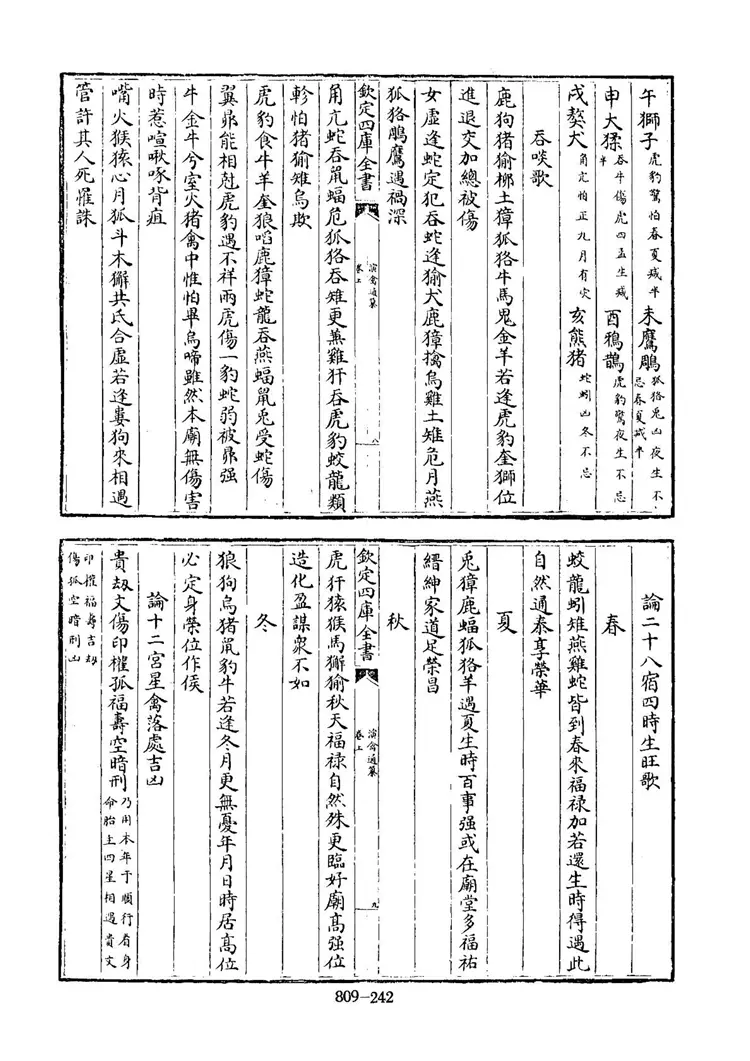 午獅子虎豹驚怕春夏殘半未鷹鵰狐狢兎凶夜生不忌春夏減半
申大猱吞牛傷虎四孟生殘半酉鴉鵲虎豹驚夜生不忌
戌獒犬角亢怕正九月有灾亥熊猪蛇蚓凶冬不忌
吞啖歌
鹿狗猪㺄榔土獐狐狢牛馬鬼金羊若逢虎豹奎獅位
進退交加總被傷
女虛逢蛇定犯吞蛇逢㺄犬鹿獐擒烏雞土雉危月燕
狐狢鵰鷹遇禍深
欽定四庫全書
演禽通纂
卷上
八
角亢蛇吞鼠蝠危狐狢吞雉更兼雞犴吞虎豹蛟龍類
軫怕猪㺄雉烏欺
虎豹食牛羊奎狼啗鹿獐蛇龍吞燕蝠鼠兎受蛇傷
翼昴能相尅虎豹遇不祥兩虎傷一豹蛇弱被昴强
牛金牛兮室火猪禽中惟怕畢烏啼雖然本廟無傷害
時惹喧啾啄背疽
嘴火猴猿心月狐斗木獬共氐合虛若逢婁狗來相遇
管許其人死罹誅
論二十八宿四時生旺歌
春
蛟龍蚓雉燕雞蛇皆到春來福禄加若還生時得遇此
自然通泰享榮華
夏
兎獐鹿蝠狐狢羊遇夏生時百事强或在廟堂多福祐
縉紳家道足榮昌
秋
欽定四庫全書
演禽通纂
卷上
九
虎犴猿猴馬獬㺄秋天福禄自然殊更臨好廟髙强位
造化盈謀衆不如
冬
狼狗烏猪鼠豹牛若逢冬月更無憂年月日時居髙位
必定身榮位作侯
論十二宮星禽落處吉凶
貴刼文傷印權孤福壽空暗刑乃用本年于順行看身命胎主四星相遇貴文
印權福壽吉刼傷孤空暗刑凶
809-242